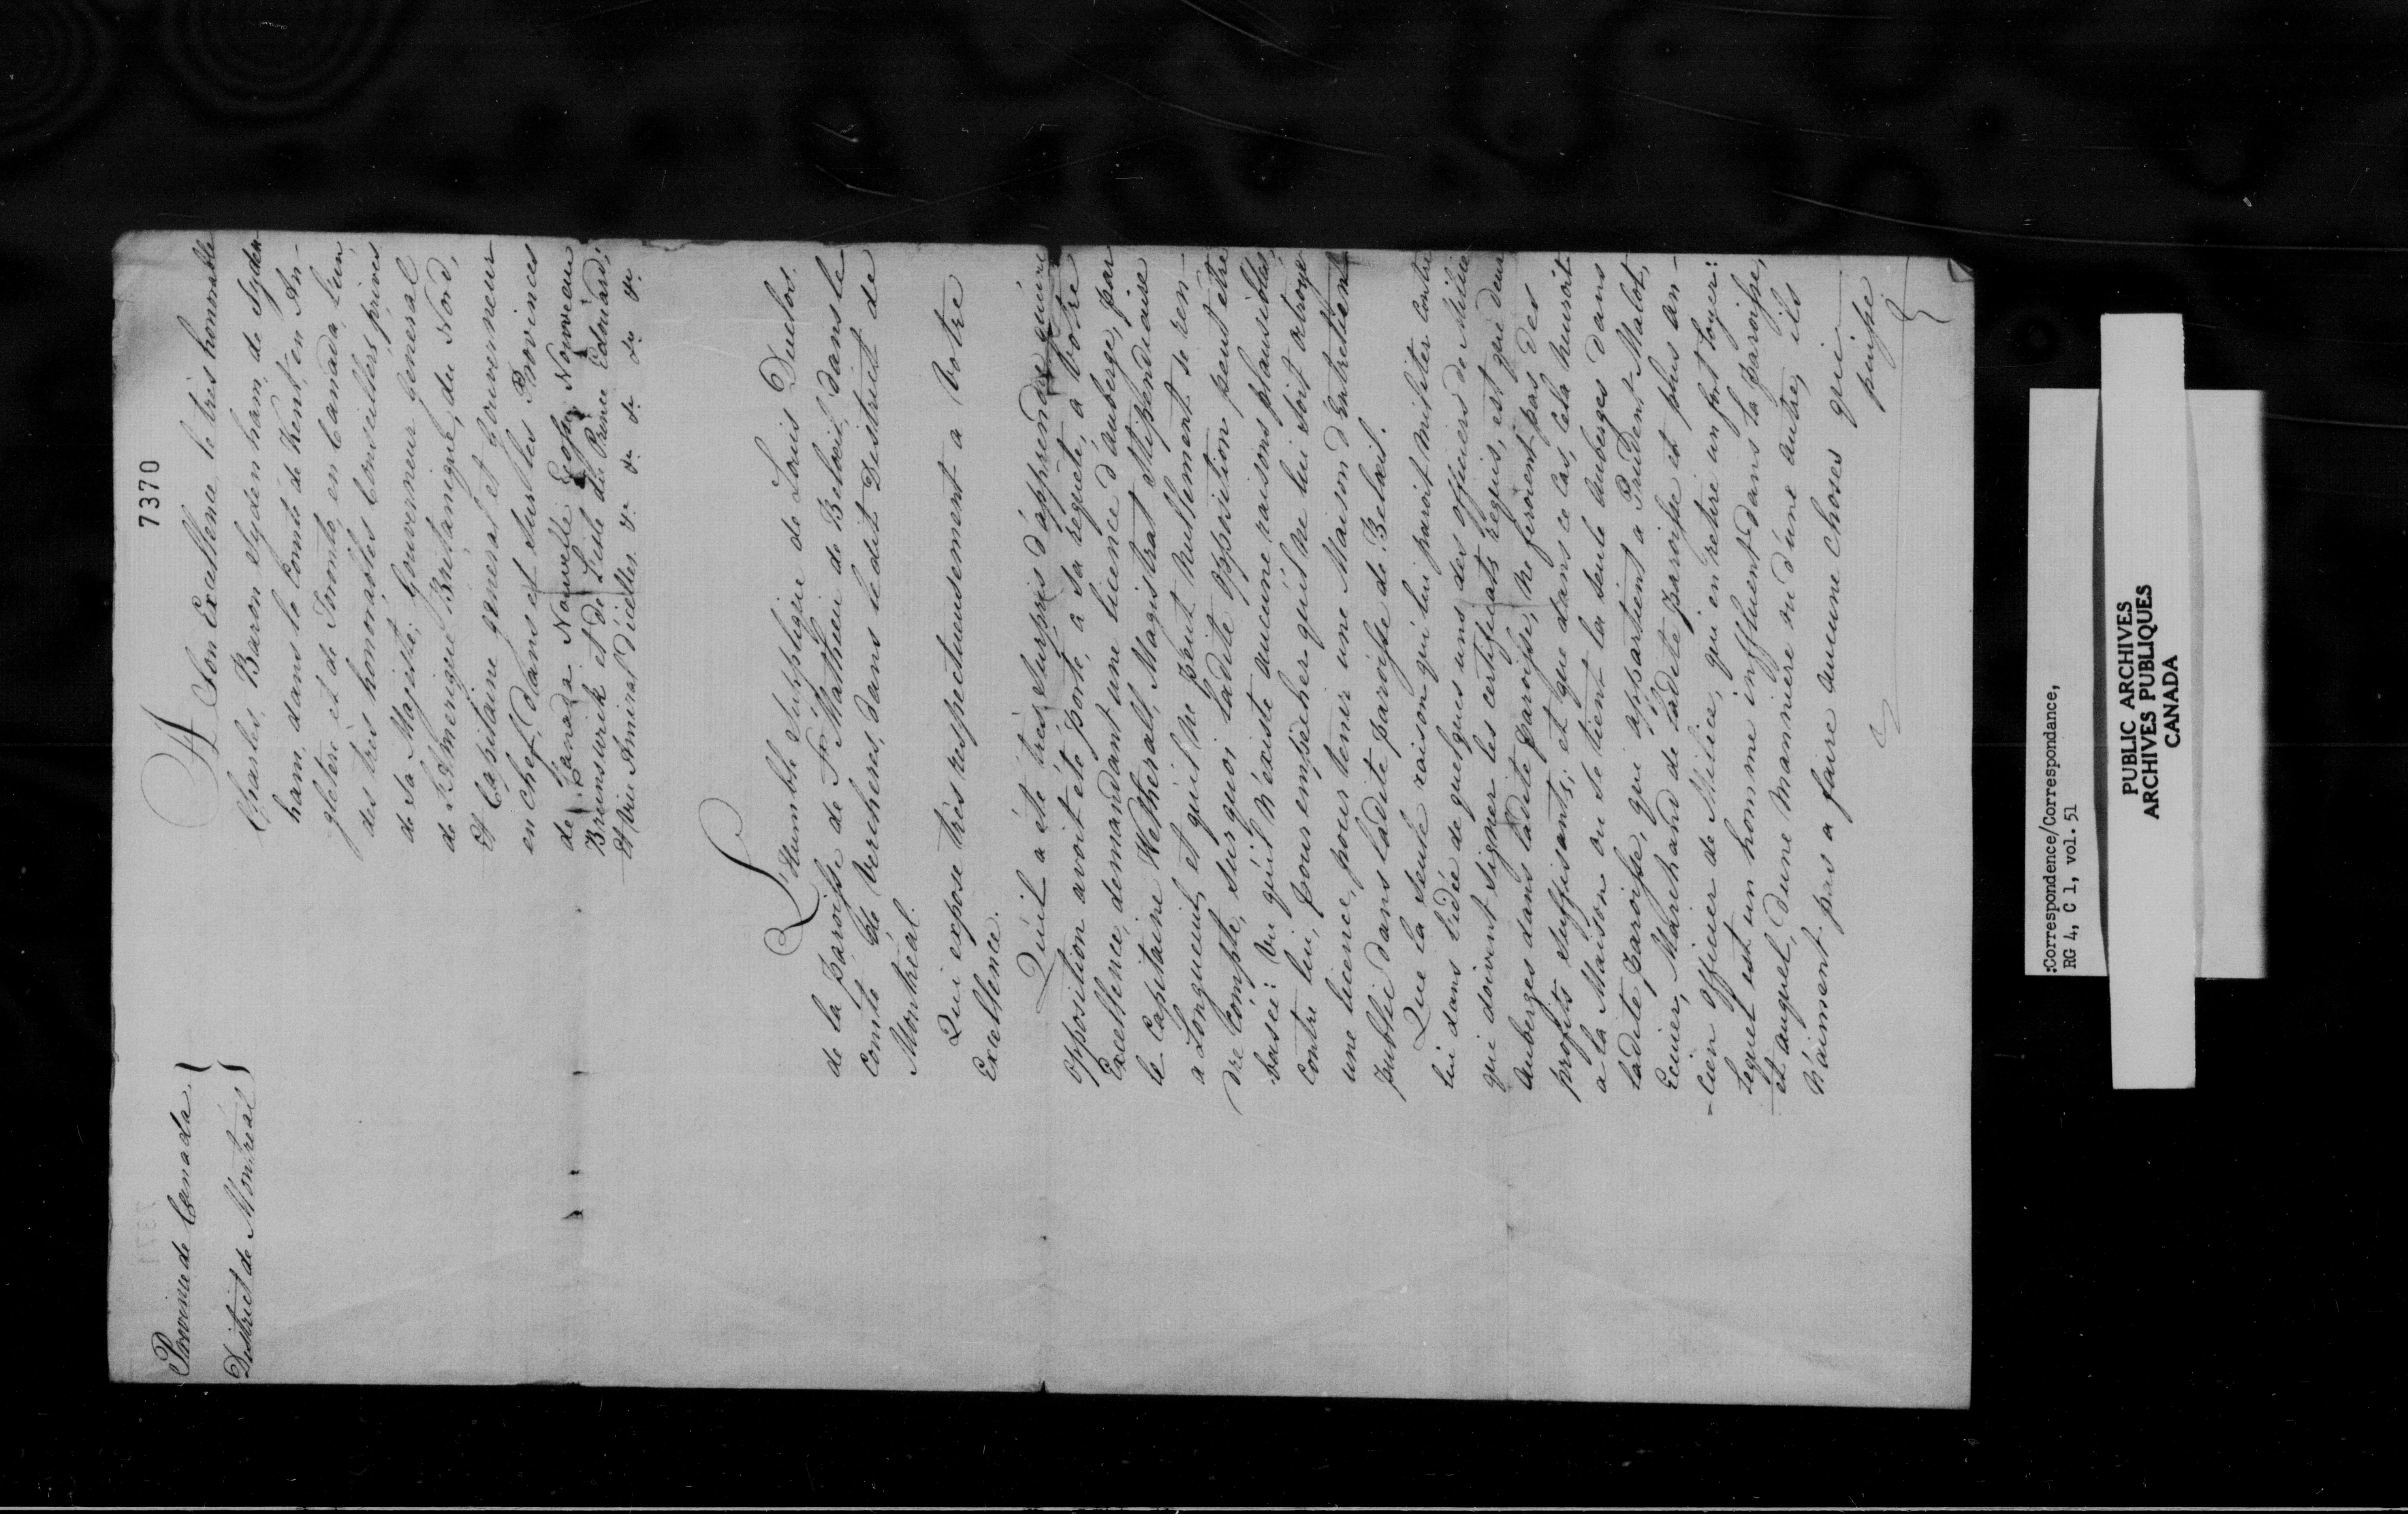 7370
Province de Canada }
District de Montréal }
A Son Excellence le très honorable
Charles, Baron Sydenham, de Syden
ham, dans le Comté de Kent, en An-
gletère et de Toronto, en Canada, l'un,
des très honorables Conseillers privés
de Sa Majesté; Gouverneur General
de L'Amerique Britanique, du Nord,
Et Capitaine général et Gouverneur
en Chef, dans et sur les Provinces
de Canada Nouvelle Ecosse, Nouveau
Brunswick et de L'isle du Prince Edouard,
et Vice Amiral D'icelles. &c. &c. &c. &c. &c.
L'Humble Supplique de Louis Duclos.
de la paroisse de St. Mathieu de Belœil, dans le
Comté de Vercheres, dans ledit District de
Montréal.
Qui expose très respectueusement a Votre
Excellence.
Qu'il a été très surpris d'apprendre qu'une
opposition avoit été porté, a sa requete, a Votre
Excellence, demandant une licence d'auberge, par
le Capitaine Wetherall, Magistrat Stipendiaire
a Longueuil, et qu'il ne peut nullement se ren-
dre compte, sur quoi ladite opposition peut être
basée: Vu qu'il n'éxiste aucune raisons plausibles,
contre lui, pour empiecher qu'il ne lui soit octroyé
une licence, pour tenir une Maison d'entretient
public dans ladite paroisse de Belœil.
Que la seule raison qui lui paroit militer contre
lui dans l'idée de quelques uns des officiers de Milice
qui doivent signer les certificats requis, est que deux
auberges dans ladite paroisse, ne feroient pas des
profits suffisants; et que dans ce cas, cela nuiroit
a la Maison ou se tient la seule auberges dans
ladite paroisse, qui appartient a Prudent Malot,
Ecuier, Marchand de ladite paroisse et plus an-
-cien officier de Milice, qui en retire un fort loyer:
lequel est un homme influent dans la paroisse,
et auquel, d'une manniere ou d'une autre, ils
n'aiment pas a faire aucune choses qui
puisse
:Correspondence/Correspondance,
RG 4, C 1, vol. 51
PUBLIC ARCHIVES
ARCHIVES PUBLIQUES
CANADA